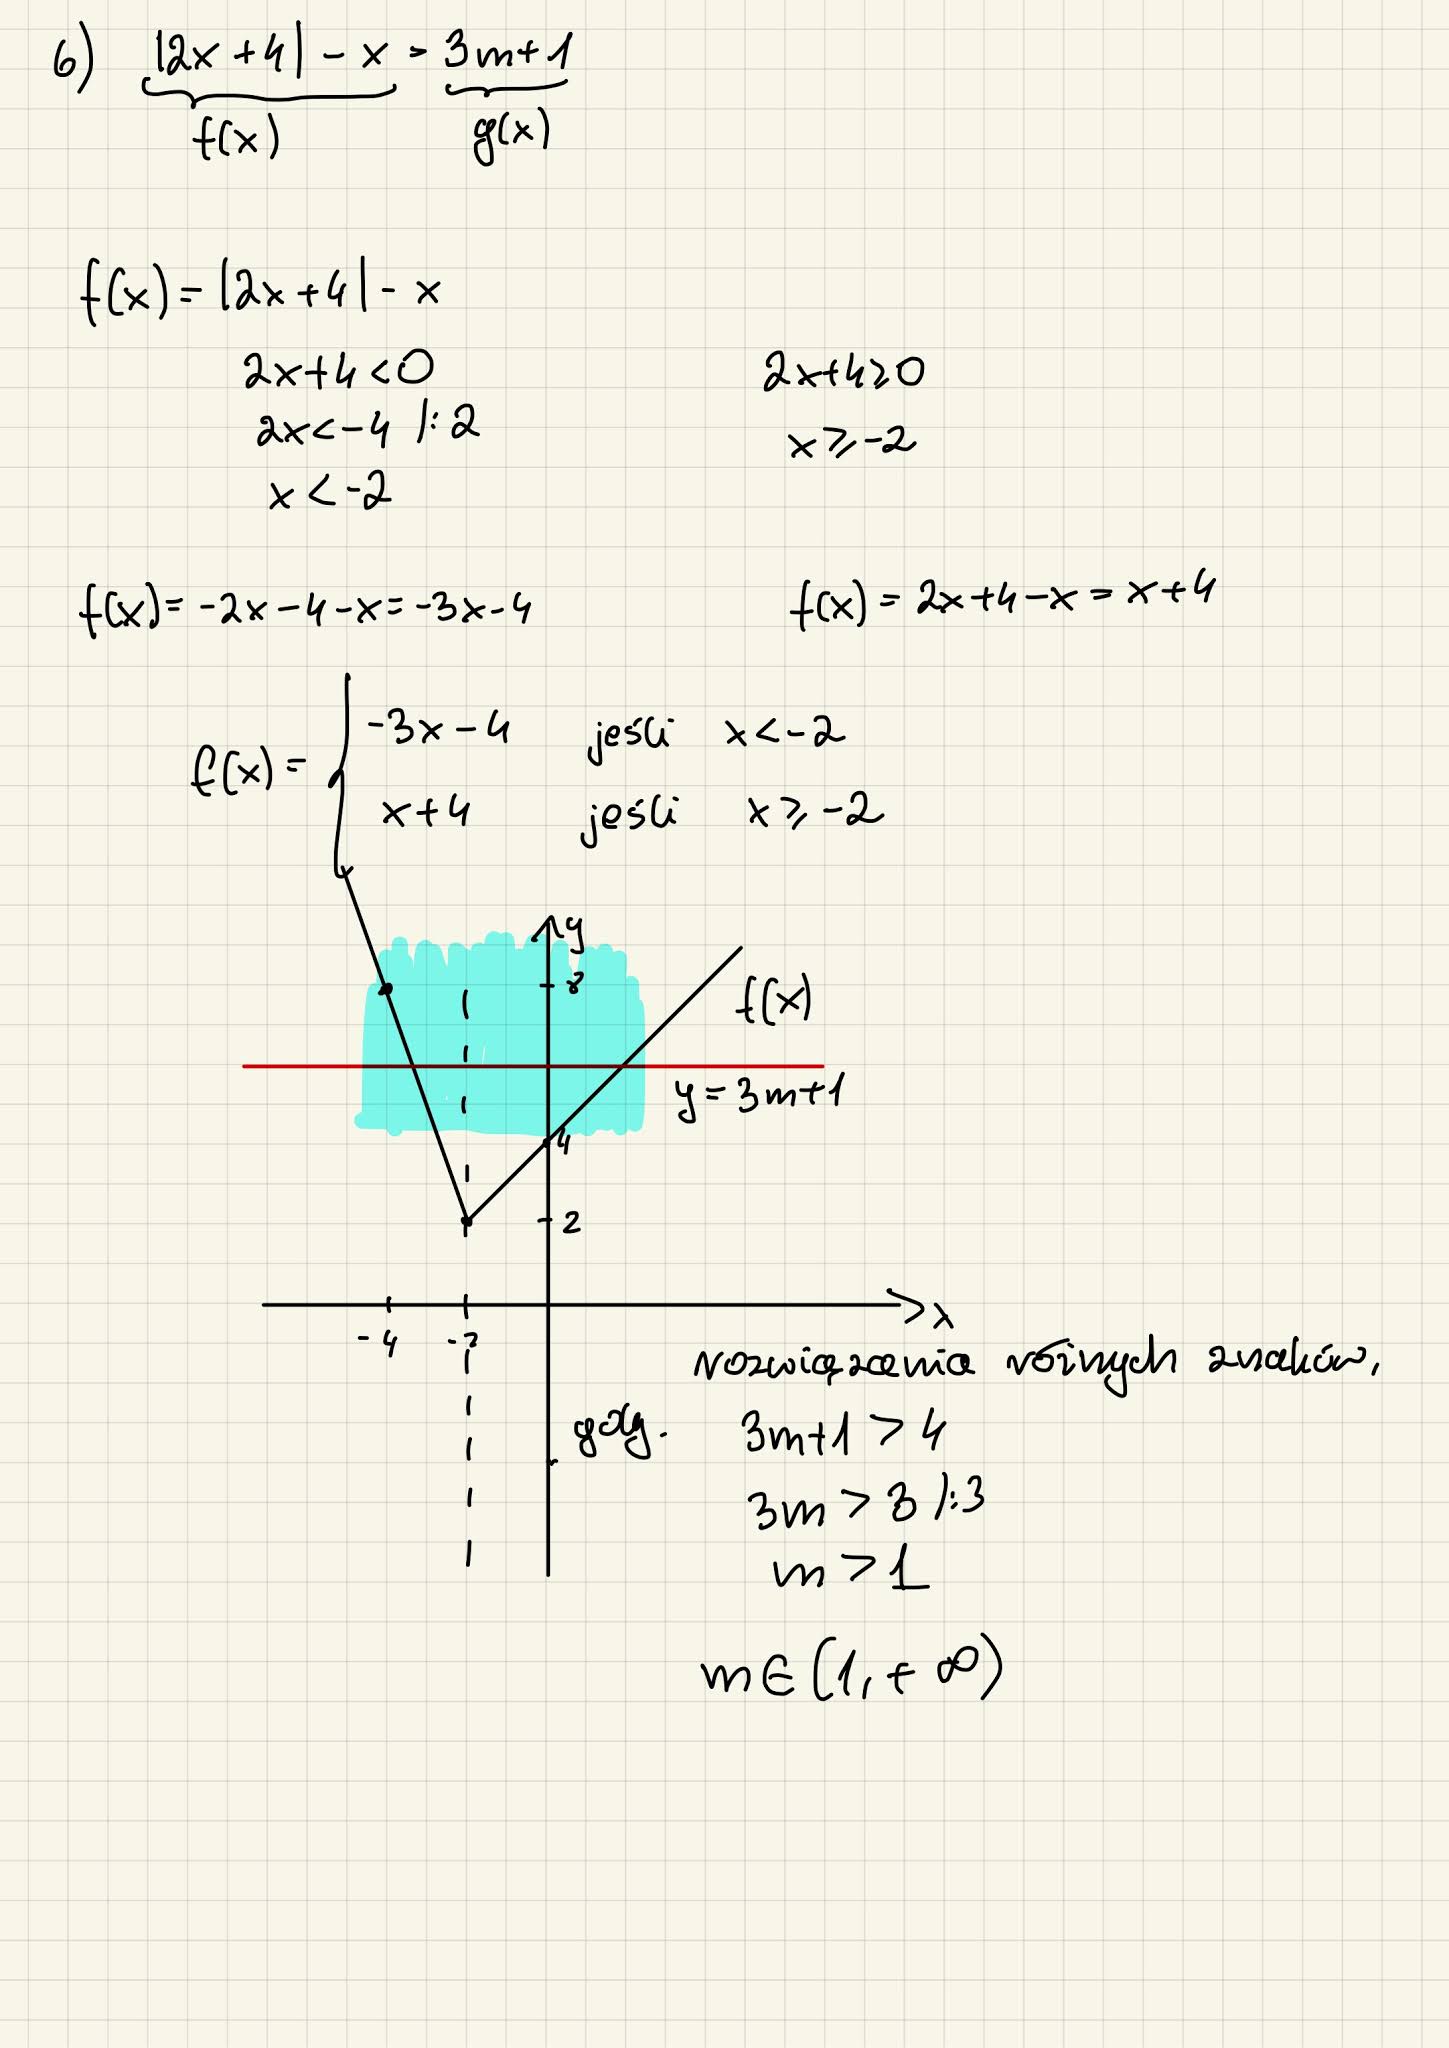 6) |2x+4| - x = 3m+1
f(x) g(x)
f(x) = |2x+4| - x
2x+4 < 0 2x+4 ⩾ 0
2x < -4 /: 2 x ⩾ -2
x < -2
f(x) = -2x - 4 - x = -3x - 4 f(x) = 2x+4 - x = x+4
f(x) = { -3x - 4 jeśli x < -2
x+4 jeśli x ⩾ -2
y
8
f(x)
y = 3m+1
4
2
x
-4 -2
rozwiązania różnych znaków,
gdy. 3m+1 > 4
3m > 3 /:3
m > 1
m ∈ (1, + ∞)